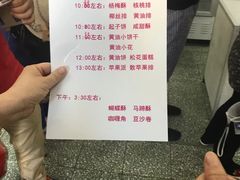 10:00左右: 杨梅酥 核桃排
椰丝排 黄油排
10:30左右: 起子饼 咸甜酥
11:00左右: 黄油小饼干
黄油小花
12:00左右: 黄油饼 松花蛋糕
13:00左右: 苹果派 数苹果排
下午: 3:30左右:
蝴蝶酥 马蹄酥
咖喱角 豆沙卷